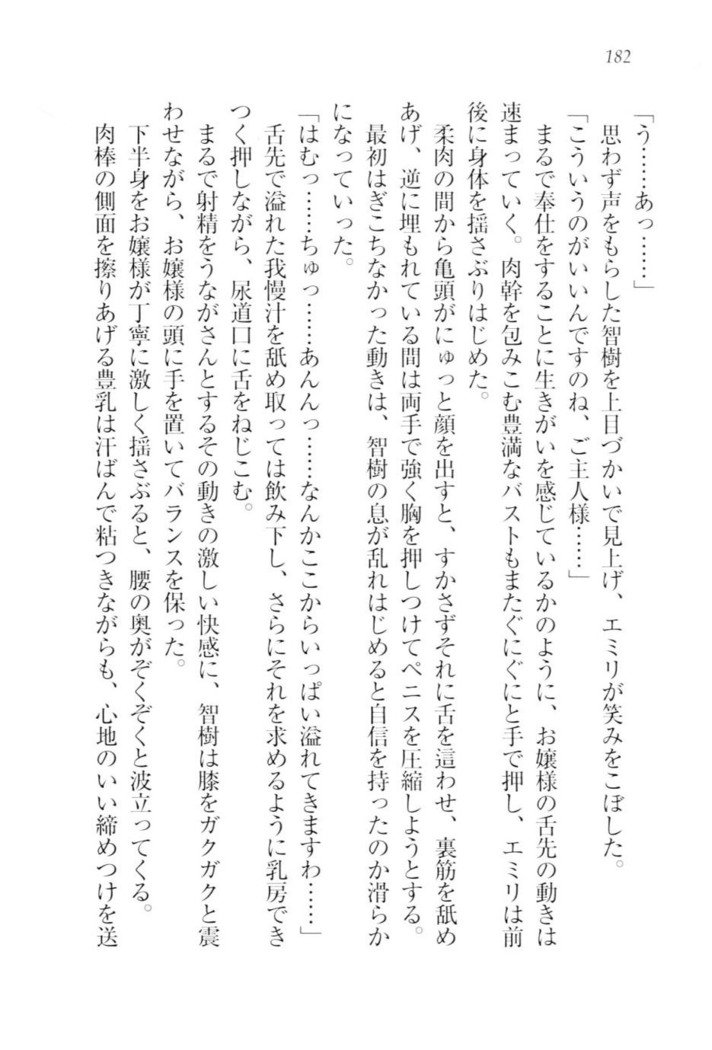 182
「う……あっ……」
思わず声をもらした智樹を上目づかいで見上げ、エミリが笑みをこぼした。
「こういうのがいいんですのね、ご主人様……」
まるで奉仕をすることに生きがいを感じているかのように、お嬢様の舌先の動きは
速まっていく。肉幹を包みこむ豊満なバストもまたぐにぐにと手で押し、エミリは前
後に身体を揺さぶりはじめた。
柔肉の間から亀頭がにゅっと顔を出すと、すかさずそれに舌を這わせ、裏筋を舐め
あげ、逆に埋もれている間は両手で強く胸を押しつけてペニスを圧縮しようとする。
最初はぎこちなかった動きは、智樹の息が乱れはじめると自信を持ったのか滑らか
になっていった。
「はむっ……ちゅっ……あんんっ……なんかここからいっぱい溢れてきますわ……」
舌先で溢れた我慢汁を舐め取っては飲み下し、さらにそれを求めるように乳房でき
つく押しながら、尿道口に舌をねじこむ。
まるで射精をうながさんとするその動きの激しい快感に、智樹は膝をガクガクと震
わせながら、お嬢様の頭に手を置いてバランスを保った。
下半身をお嬢様が丁寧に激しく揺さぶると、腰の奥がぞくぞくと波立ってくる。
肉棒の側面を擦りあげる豊乳は汗ばんで粘つきながらも、心地のいい締めつけを送